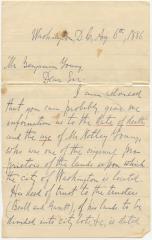 Washington D.C. Aug 6th, 1886
Mr Benjamin Young,
Dear Sir:
I am advised
that you can probably give me
information as to the date of death
and the age of Mr Notley Young,
who was one of the original pro-
prietors of the lands upon which
the city of Washington is located
His deed of trust to the trustees
(Beall and Gantt) of his land to be
divided into city lots &c, is dated